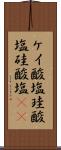 ケイ酸塩珪酸
塩硅酸塩